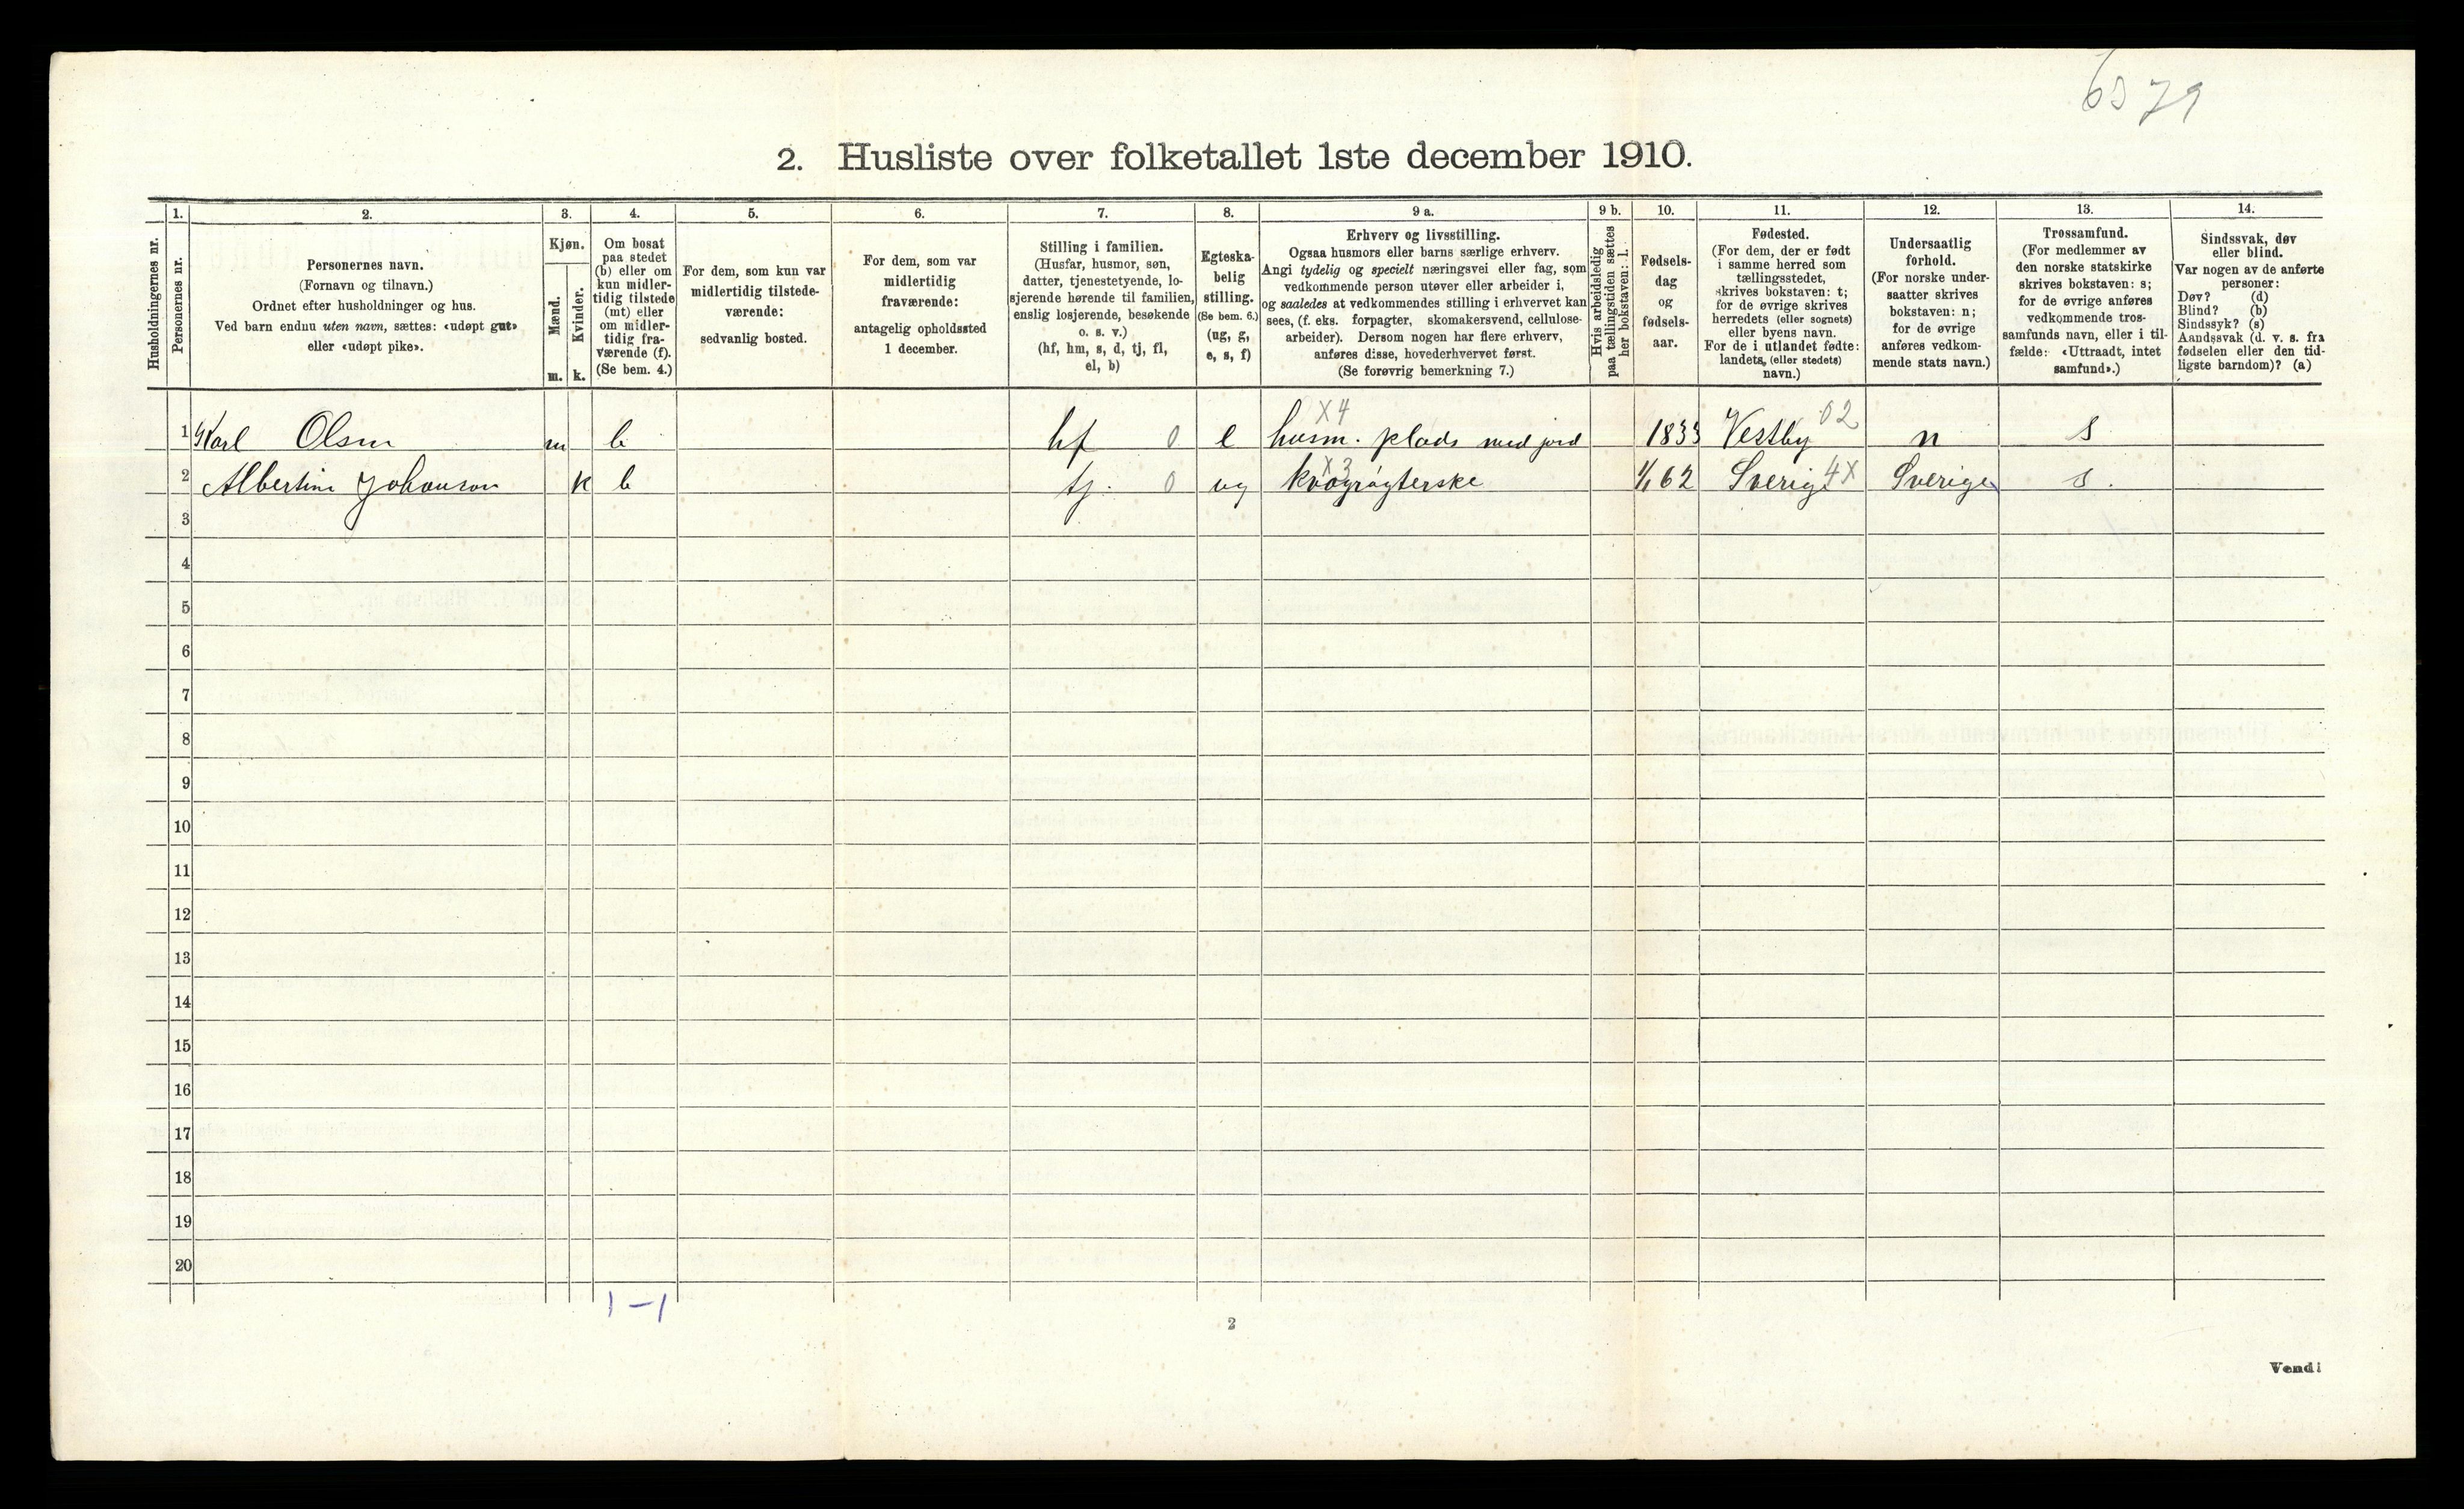 6579
2. Husliste over folketallet 1ste december 1910.
Husholdningernes nr.
1.
Personernes nr.
2.
Personernes navn.
(Fornavn og tilnavn.)
Ordnet efter husholdninger og hus.
Ved barn endnu uten navn, sættes: «udøpt gut»
eller «udøpt pike».
3.
Kjøn.
Mænd.
Kvinder.
m. k.
4.
Om bosat
paa stedet
(b) eller om
kun midler-
tidig tilstede
(mt) eller
om midler-
tidig fra-
værende (f).
(Se bem. 4.)
5.
For dem, som kun var
midlertidig tilstede-
værende:
sedvanlig bosted.
6.
For dem, som var
midlertidig
fraværende:
antagelig opholdssted
1 december.
7.
Stilling i familien.
(Husfar, husmor, søn,
datter, tjenestetyende, lo-
sjerende hørende til familien,
enslig losjerende, besøkende
o. s. v.)
(hf, hm, s, d, tj, fl,
el, b)
8.
Egteska-
belig
stilling.
(Se bem. 6.)
(ug, g,
e, s, f)
9 a.
Erhverv og livsstilling.
Ogsaa husmors eller barns særlige erhverv.
Angi tydelig og specielt næringsvei eller fag, som
vedkommende person utøver eller arbeider i,
og saaledes at vedkommendes stilling i erhvervet kan
sees, (f. eks. forpagter, skomakersvend, cellulose-
arbeider). Dersom nogen har flere erhverv,
anføres disse, hovederhvervet først.
(Se forøvrig bemerkning 7.)
9 b.
Hvis arbeidsledig
paa tællingstiden sættes
her bokstaven: l.
10.
Fødsels-
dag
og
fødsels-
aar.
11.
Fødested.
(For dem, der er født
i samme herred som
tællingsstedet,
skrives bokstaven: t;
for de øvrige skrives
herredets (eller sognets)
eller byens navn.
For de i utlandet fødte:
landets (eller stedets)
navn.)
12.
Undersaatlig
forhold.
(For norske under-
saatter skrives
bokstaven: n;
for de øvrige
anføres vedkom-
mende stats navn.)
13.
Trossamfund.
(For medlemmer av
den norske statskirke
skrives bokstaven: s;
for de øvrige anføres
vedkommende tros-
samfunds navn, eller i til-
fælde: «Uttraadt, intet
samfund».)
14.
Sindssvak, døv
eller blind.
Var nogen av de anførte
personer:
Døv? (d)
Blind? (b)
Sindssyk? (s)
Aandssvak (d. v. s. fra
fødselen eller den tid-
ligste barndom)? (a)
X4 02
1 Karl Olsen m b hf 0 e husm. plads med jord 1833 Vestby n s
X3
2 Albertine Johanson k b tj. 0 ug kvægrøgterske 1/1 62 Sverige 4X Sverige s.
3
4
5
6
7
8
9
10
11
12
13
14
15
16
17
18
19
20
1 – 1
2
Vend!